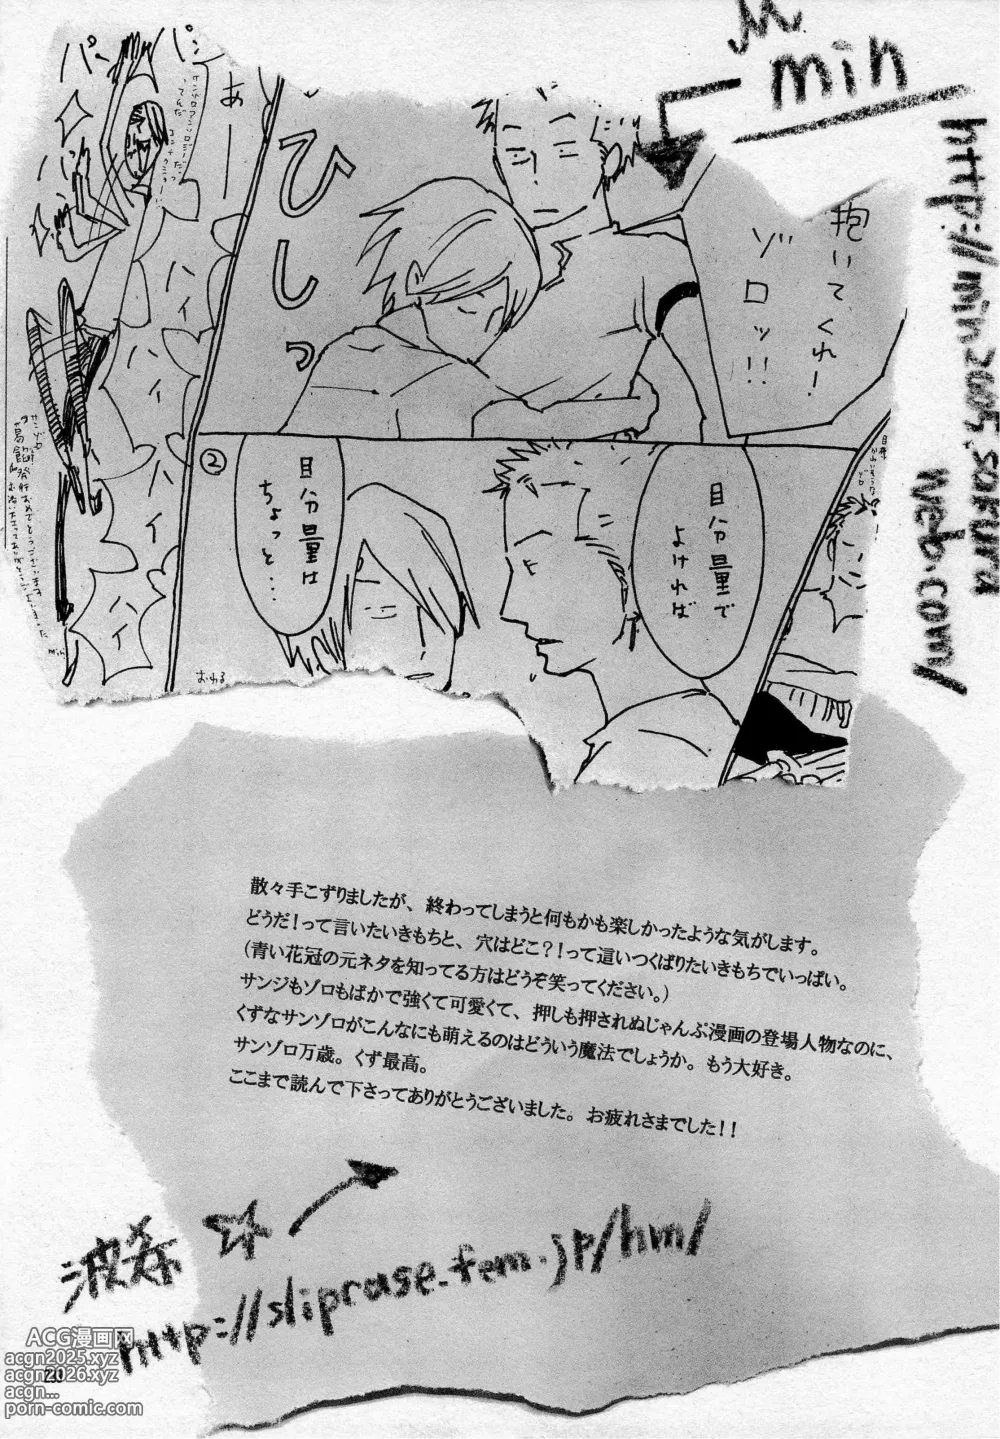 min
http://min2005.sakura
web.com/
抱いてくれ!
ゾロッ!!
ひしっ
あー
パン
パン
ハイ
ハイ
ハイ
ハイ
自分量で
よければ
②
自分量は
ちょっと…
おわる
min
散々手こずりましたが、終わってしまうと何もかも楽しかったような気がします。
どうだ!って言いたいきもちと、穴はどこ?!って這いつくばりたいきもちでいっぱい。
(青い花冠の元ネタを知ってる方はどうぞ笑ってください。)
サンジもゾロもばかで強くて可愛くて、押しも押されぬじゃんぷ漫画の登場人物なのに、
くずなサンゾロがこんなにも萌えるのはどういう魔法でしょうか。もう大好き。
サンゾロ万歳。くず最高。
ここまで読んで下さってありがとうございました。お疲れさまでした!!
波希
http://sliprase.fem.jp/hm/
ACG漫画网
acgn2025.xyz
acgn2026.xyz
acgn...
porn-comic.com
20